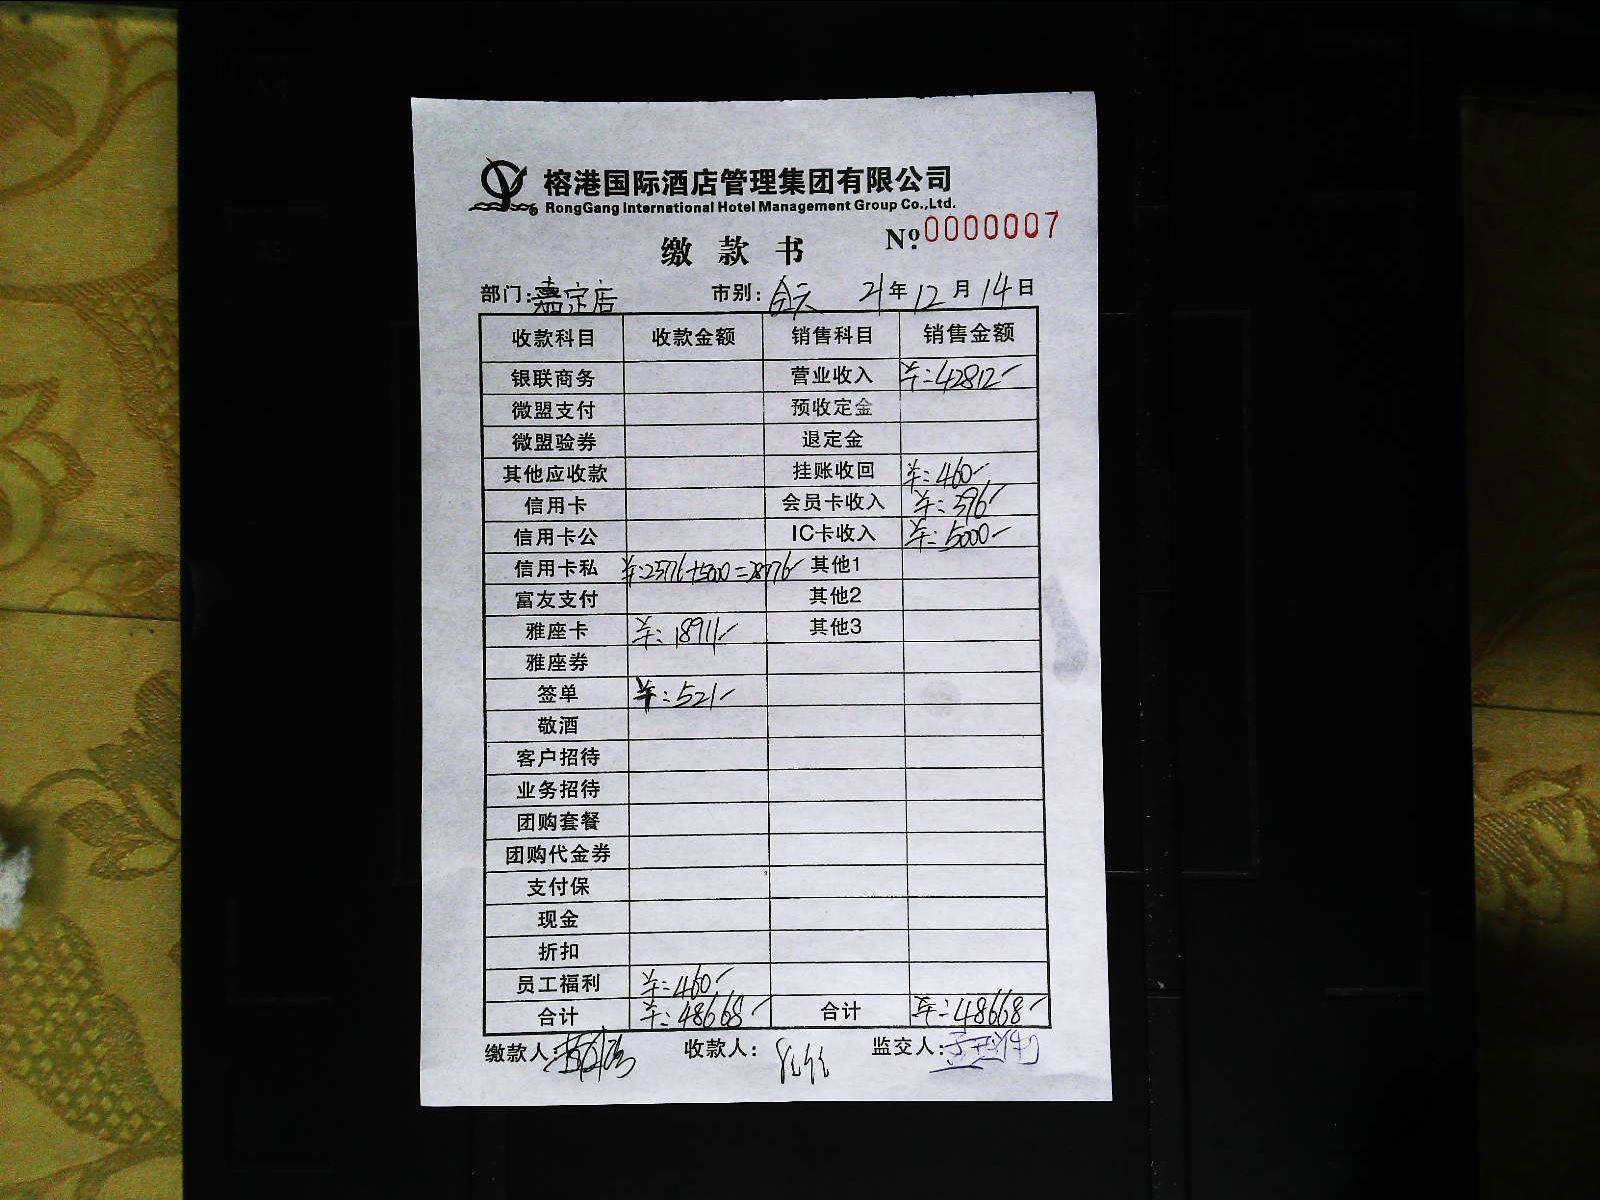 榕港国际酒店管理集团有限公司
RongGang International Hotel Management Group Co.,Ltd.
缴款书 Nº 0000007
部门:嘉定店 市别:全天 21年12月14日
收款科目 收款金额 销售科目 销售金额
银联商务 营业收入 ¥:42812-
微盟支付 预收定金
微盟验券 退定金
其他应收款 挂账收回 ¥:460-
信用卡 会员卡收入 ¥:396-
信用卡公 IC卡收入 ¥:5000-
信用卡私 ¥:23776+5000=28776- 其他1
富友支付 其他2
雅座卡 ¥:18911- 其他3
雅座券
签单 ¥:521-
敬酒
客户招待
业务招待
团购套餐
团购代金券
支付保
现金
折扣
员工福利 ¥:460-
合计 ¥:48668- 合计 ¥:48668-
缴款人: 收款人: 监交人: